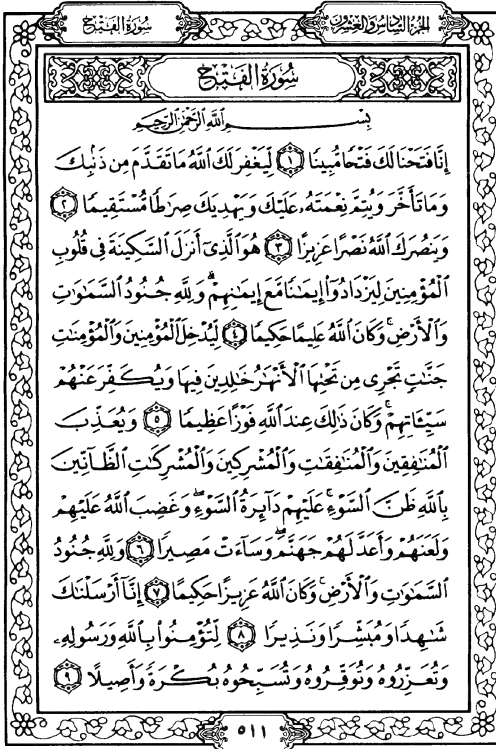 سُورَةُ الفَتْحِ الجُزْءُ السَّادِسُ وَالعِشْرُونَ
سُورَةُ الْفَتْحِ
بِسْمِ اللَّهِ الرَّحْمَٰنِ الرَّحِيمِ
إِنَّا فَتَحْنَا لَكَ فَتْحًا مُّبِينًا ١ لِّيَغْفِرَ لَكَ اللَّهُ مَا تَقَدَّمَ مِن ذَنۢبِكَ
وَمَا تَأَخَّرَ وَيُتِمَّ نِعْمَتَهُۥ عَلَيْكَ وَيَهْدِيَكَ صِرَٰطًا مُّسْتَقِيمًا ٢
وَيَنصُرَكَ اللَّهُ نَصْرًا عَزِيزًا ٣ هُوَ الَّذِىٓ أَنزَلَ السَّكِينَةَ فِى قُلُوبِ
الْمُؤْمِنِينَ لِيَزْدَادُوٓا۟ إِيمَٰنًا مَّعَ إِيمَٰنِهِمْ ۗ وَلِلَّهِ جُنُودُ السَّمَٰوَٰتِ
وَالْأَرْضِ ۚ وَكَانَ اللَّهُ عَلِيمًا حَكِيمًا ٤ لِّيُدْخِلَ الْمُؤْمِنِينَ وَالْمُؤْمِنَٰتِ
جَنَّٰتٍ تَجْرِى مِن تَحْتِهَا الْأَنْهَٰرُ خَٰلِدِينَ فِيهَا وَيُكَفِّرَ عَنْهُمْ
سَيِّـَٔاتِهِمْ ۚ وَكَانَ ذَٰلِكَ عِندَ اللَّهِ فَوْزًا عَظِيمًا ٥ وَيُعَذِّبَ
الْمُنَٰفِقِينَ وَالْمُنَٰفِقَٰتِ وَالْمُشْرِكِينَ وَالْمُشْرِكَٰتِ الظَّآنِّينَ
بِاللَّهِ ظَنَّ السَّوْءِ ۚ عَلَيْهِمْ دَآئِرَةُ السَّوْءِ ۖ وَغَضِبَ اللَّهُ عَلَيْهِمْ
وَلَعَنَهُمْ وَأَعَدَّ لَهُمْ جَهَنَّمَ ۖ وَسَآءَتْ مَصِيرًا ٦ وَلِلَّهِ جُنُودُ
السَّمَٰوَٰتِ وَالْأَرْضِ ۚ وَكَانَ اللَّهُ عَزِيزًا حَكِيمًا ٧ إِنَّآ أَرْسَلْنَٰكَ
شَٰهِدًا وَمُبَشِّرًا وَنَذِيرًا ٨ لِّتُؤْمِنُوا۟ بِاللَّهِ وَرَسُولِهِۦ
وَتُعَزِّرُوهُ وَتُوَقِّرُوهُ وَتُسَبِّحُوهُ بُكْرَةً وَأَصِيلًا ٩
٥١١